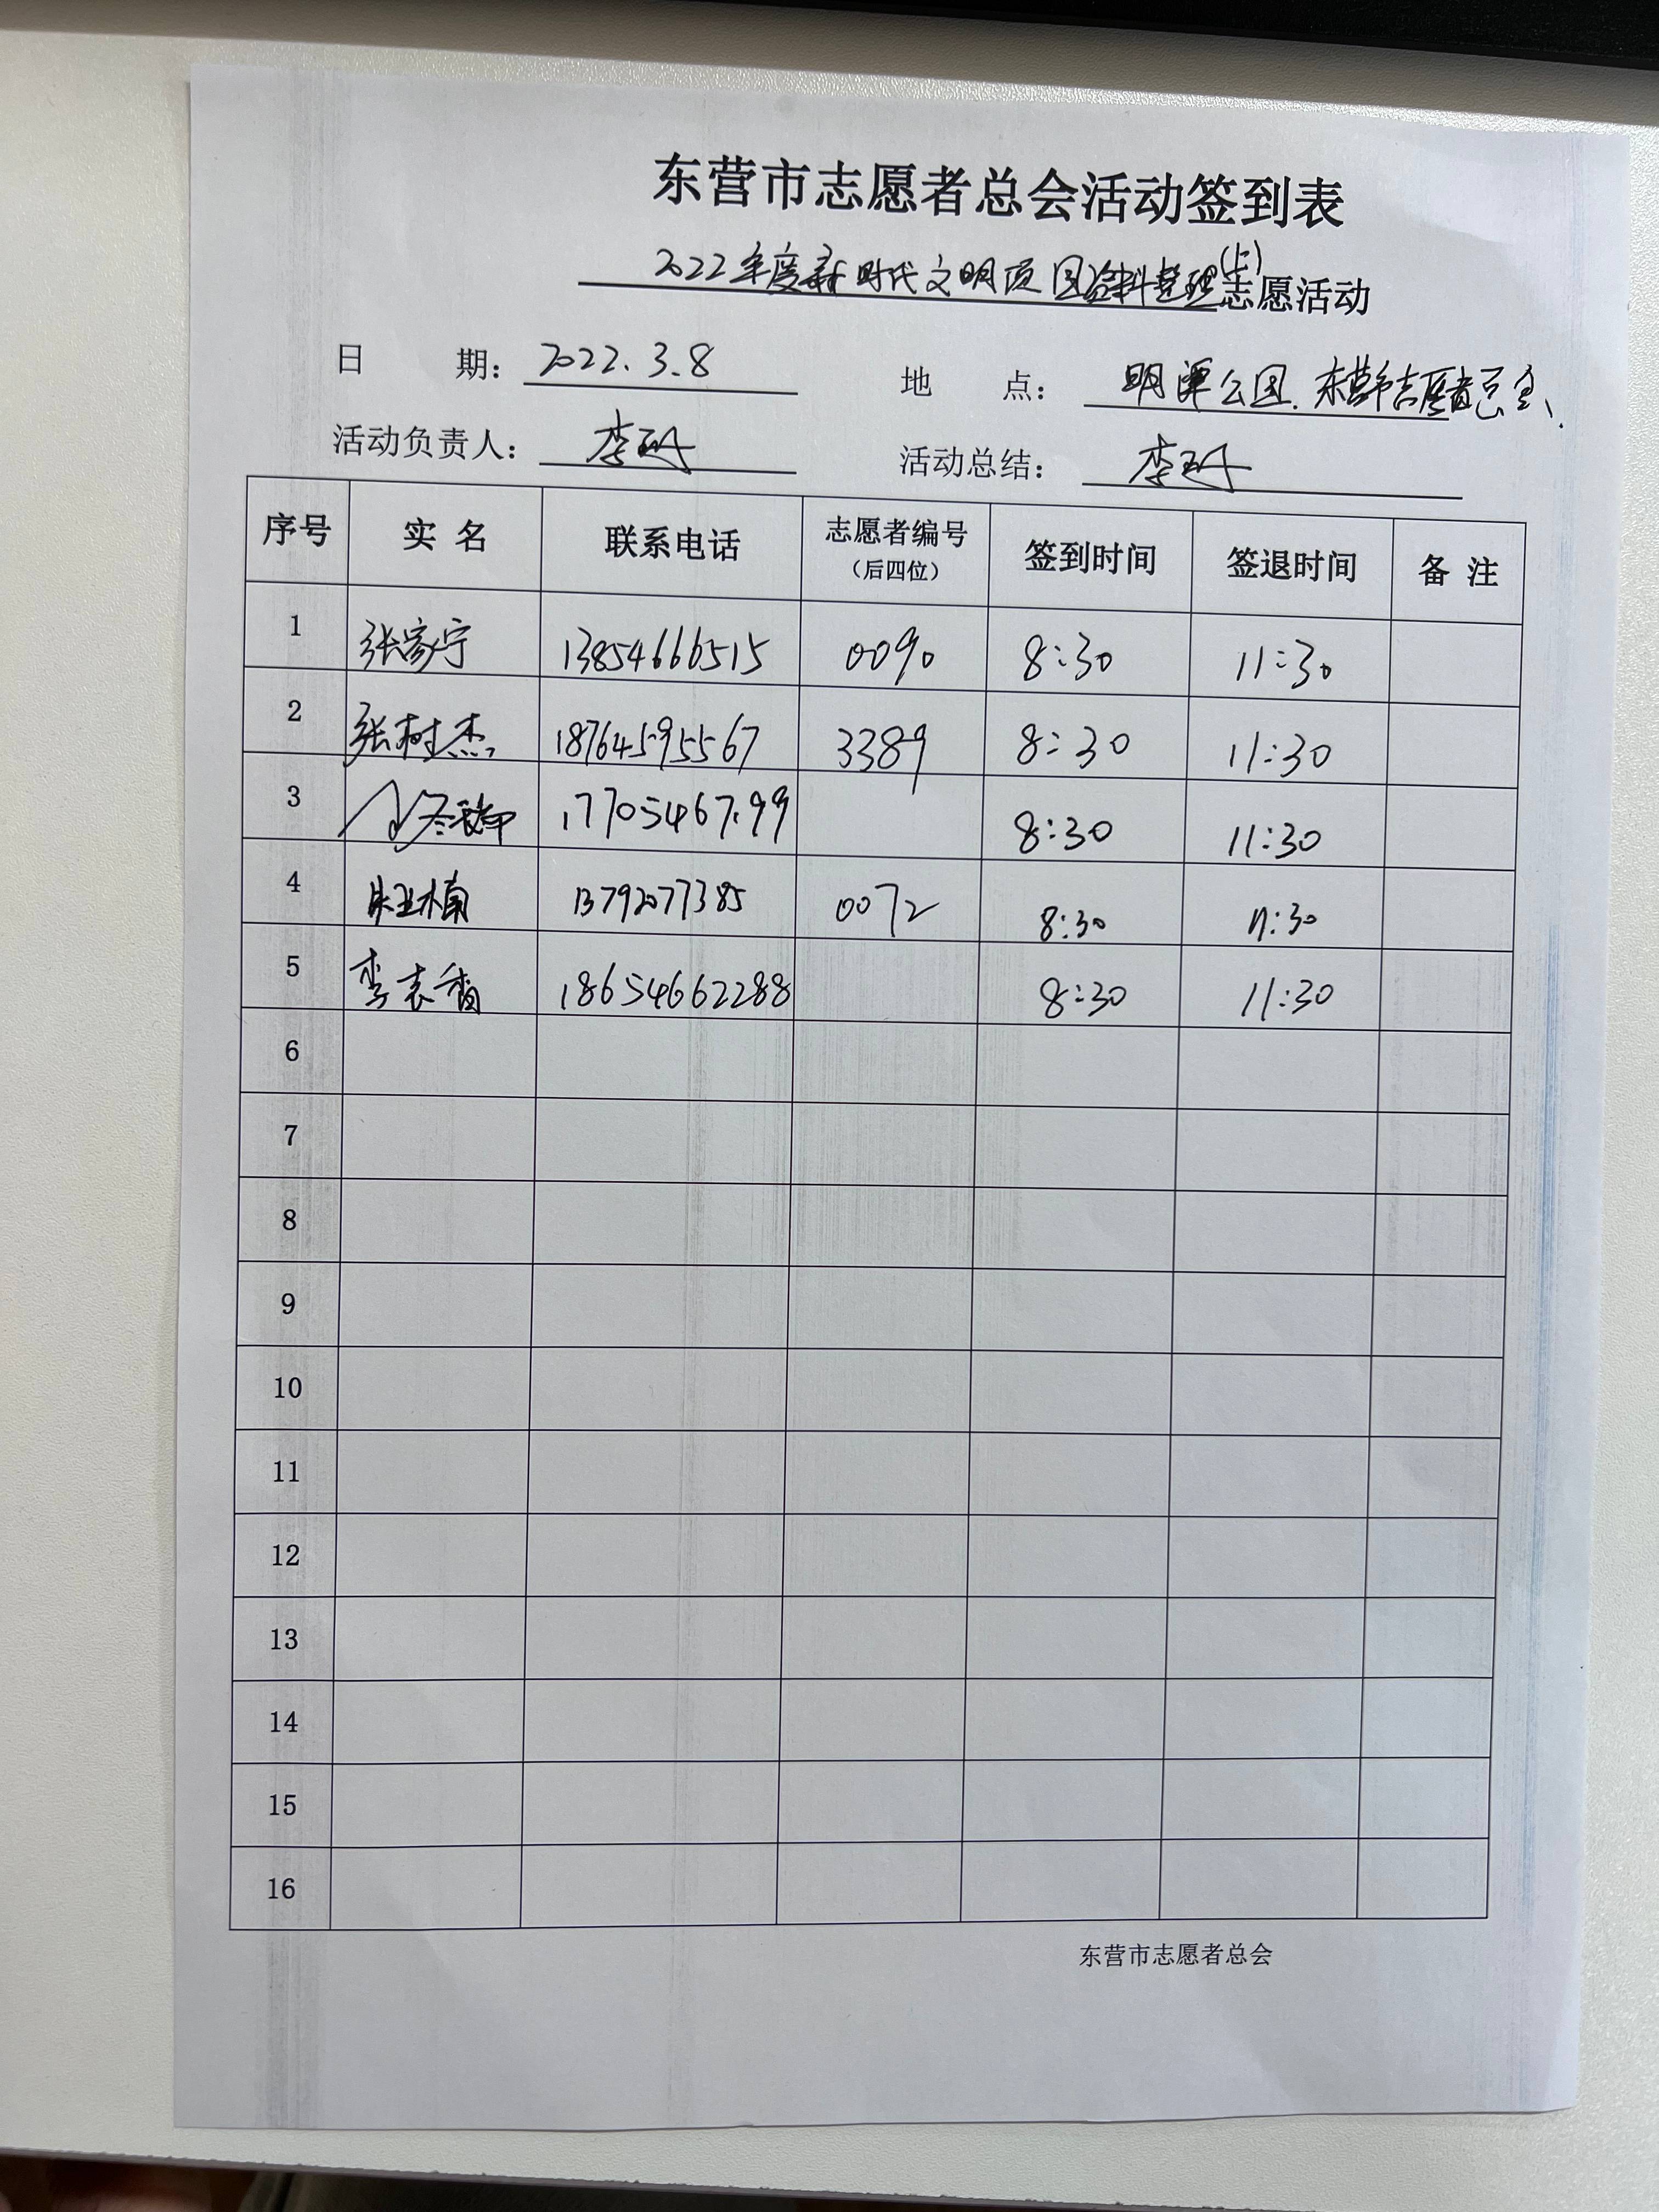 东营市志愿者总会活动签到表
2022年度新时代文明项目资料整理(上)志愿活动
日 期： 2022.3.8 地 点： 明潭公园.东营市志愿者总会
活动负责人： 李 活动总结： 李
序号 实 名 联系电话 志愿者编号（后四位） 签到时间 签退时间 备 注
1 张家宁 13854666515 0090 8:30 11:30
2 张树杰 18764595567 3389 8:30 11:30
3 8:30 11:30
4 13792077385 0072 8:30 11:30
5 李表香 18654662288 8:30 11:30
6
7
8
9
10
11
12
13
14
15
16
东营市志愿者总会